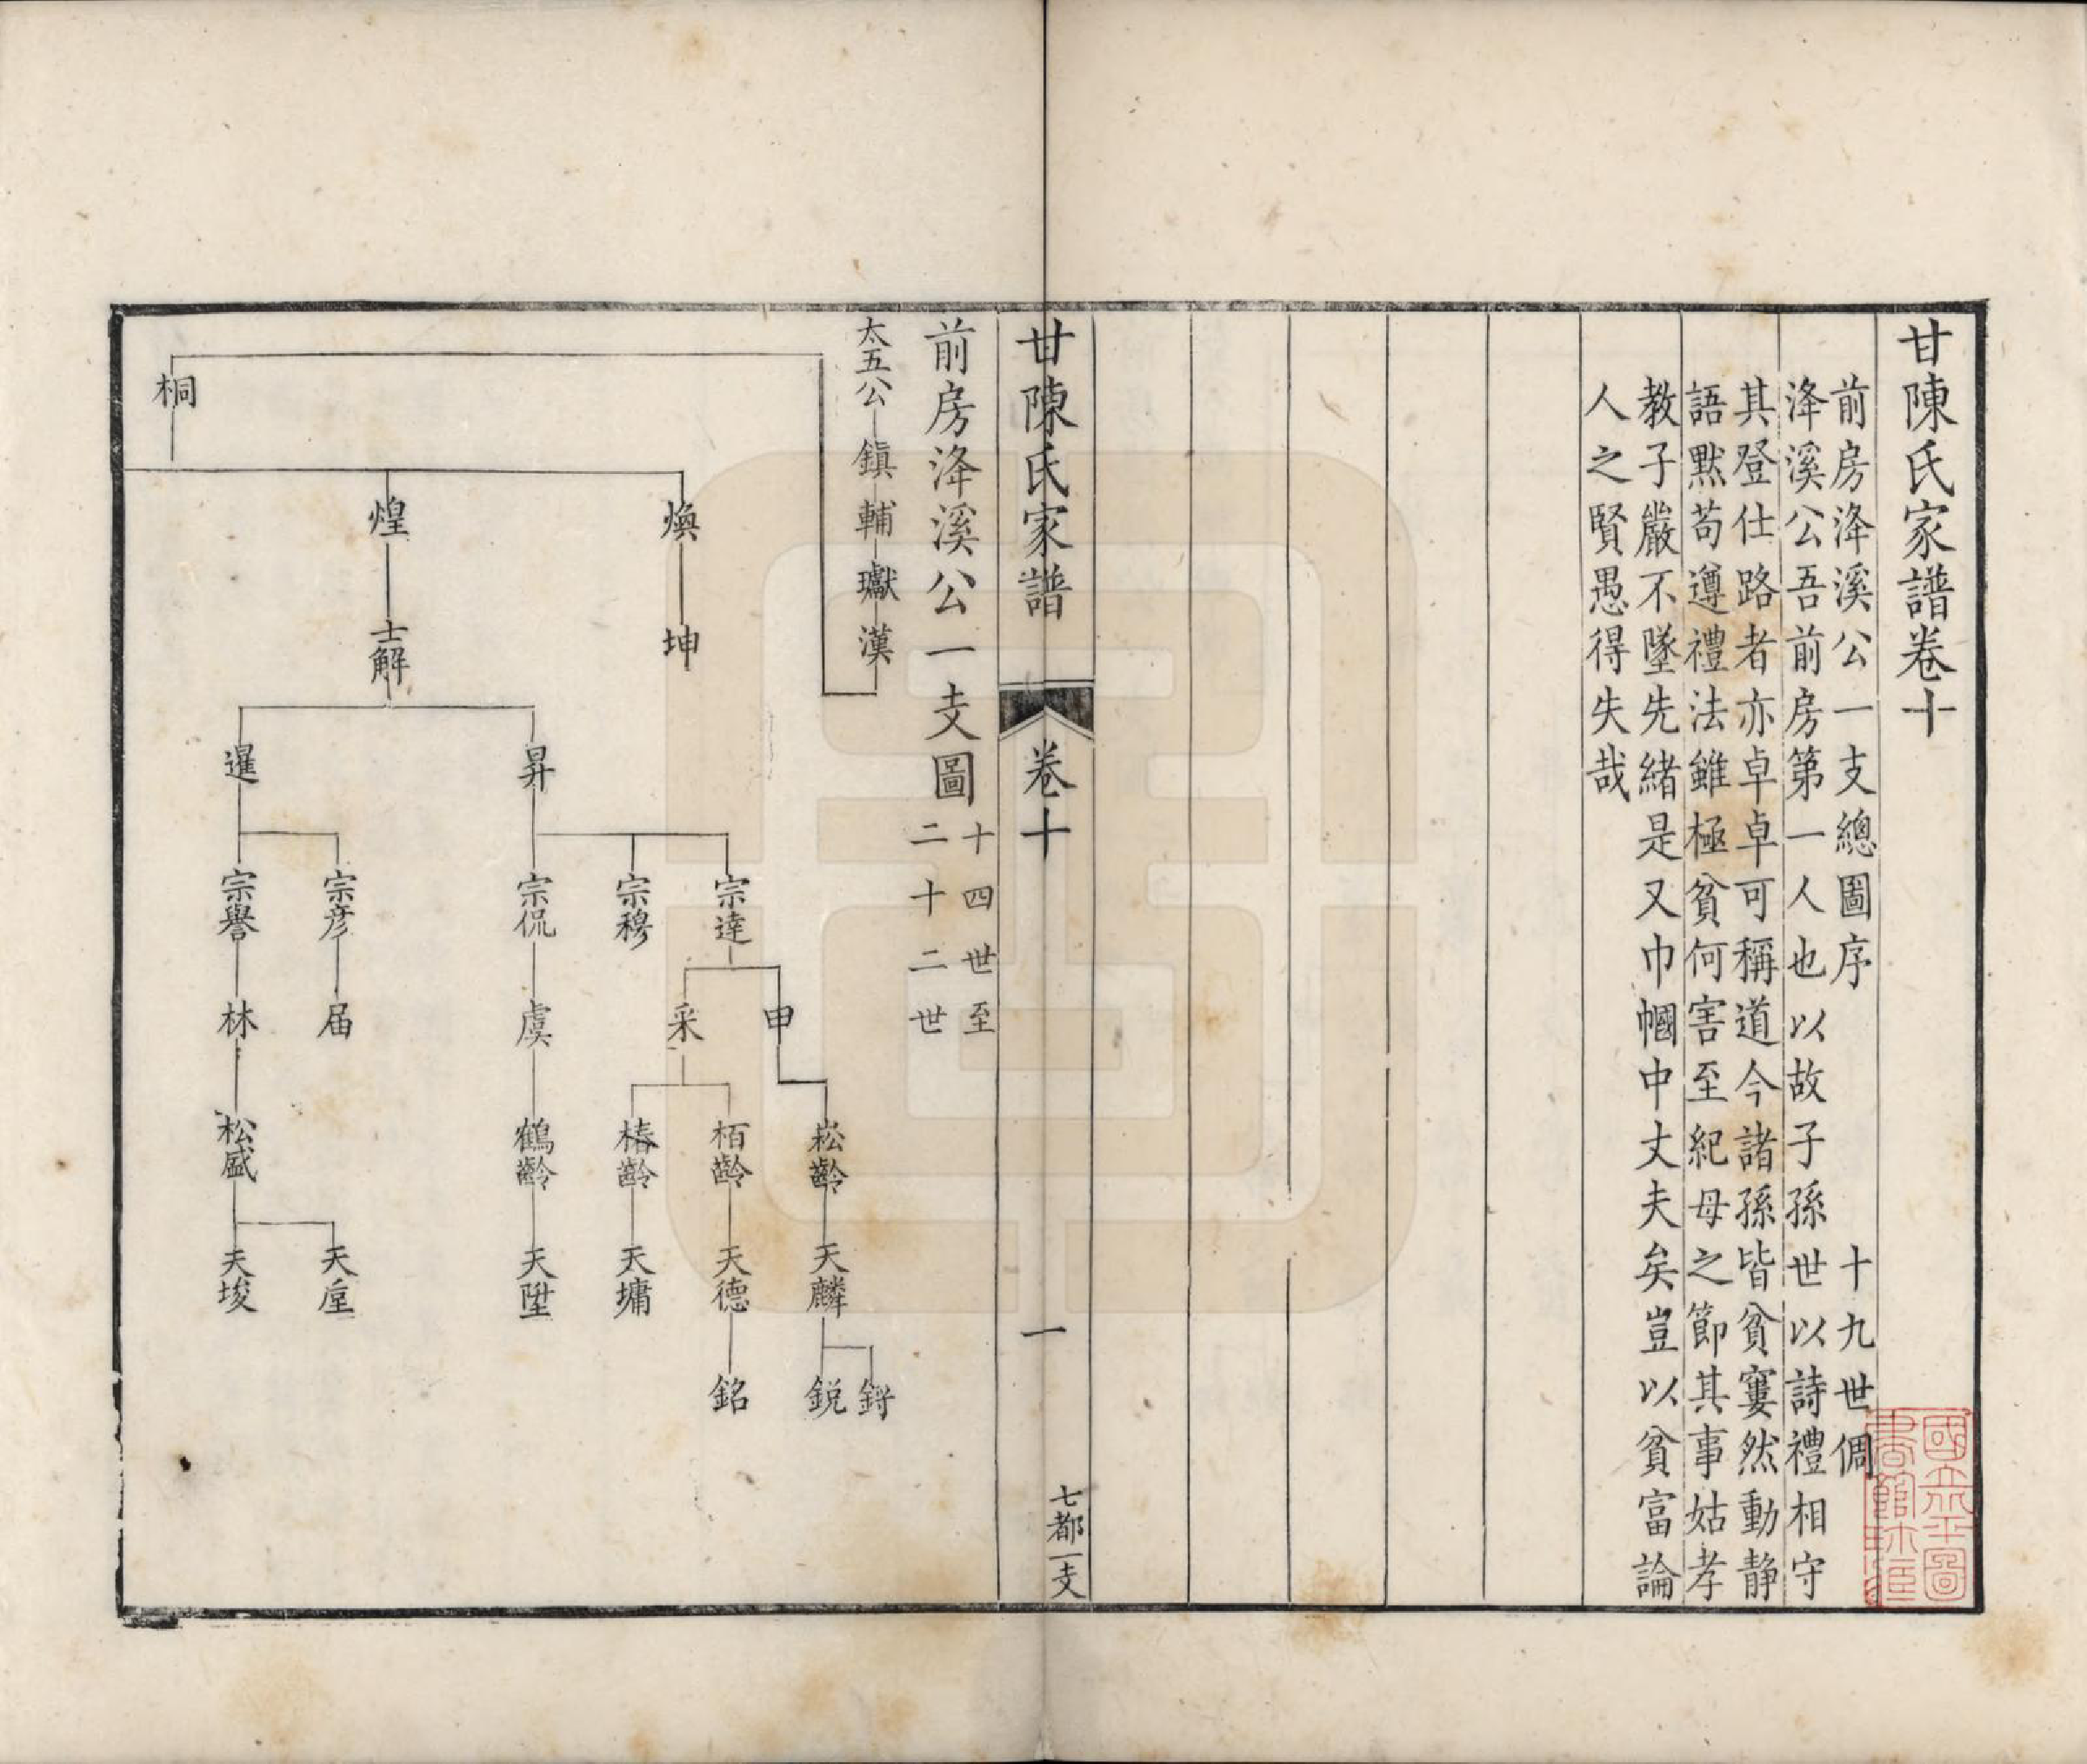 甘陳氏家譜卷十
前房洚溪公一支總圖序　十九世倜
洚溪公吾前房第一人也以故子孫世以詩禮相守
其登仕路者亦卓卓可稱道今諸孫皆貧窶然動静
語默苟遵禮法雖極貧何害至紀母之節其事姑孝
教子嚴不墜先緒是又巾幗中丈夫矣豈以貧富論
人之賢愚得失哉
甘陳氏家譜
卷十
一
七都一支
前房洚溪公一支圖
十四世至
二十二世
太五公
鎮
輔
瓛
漢
桐
煥
坤
煌
士解
昇
暹
宗達
宗穆
宗侃
宗彦
宗譽
申
采
虞
届
林
崧齡
栢齡
椿齡
鶴齡
松盛
天麟
天德
天墉
天陞
天垕
天埈
鋝
鋭
銘
國立北平圖
書館收藏